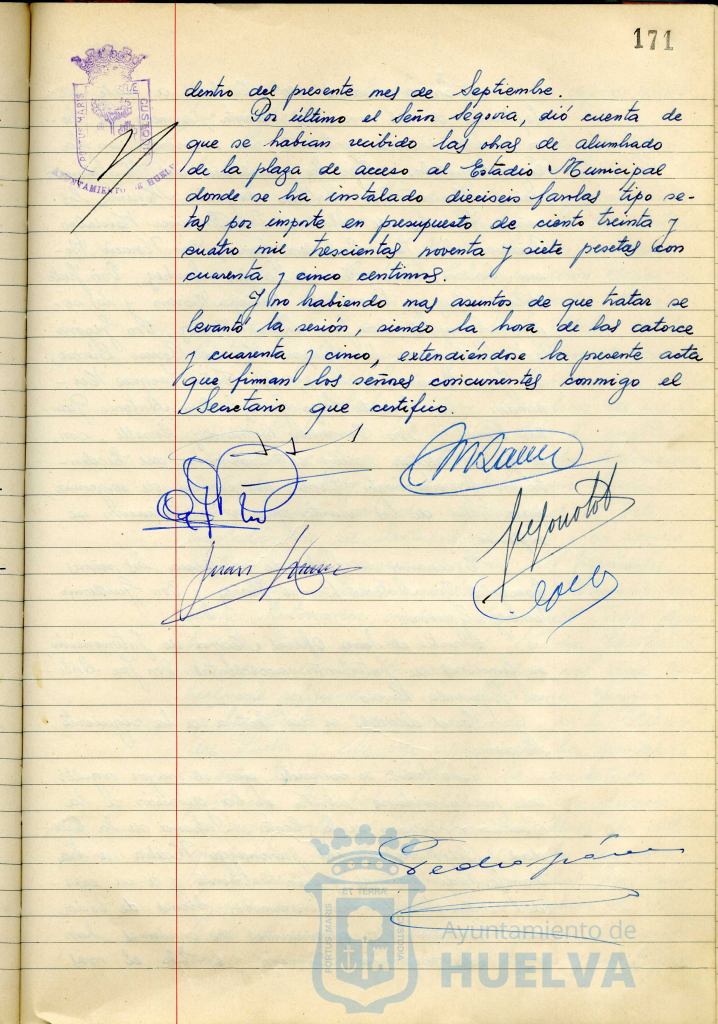 171
PORTUS MARIS
CUSTO
AYUNTAMIENTO DE HUELV
dentro del presente mes de Septiembre.
Por último el Señor Segovia, dió cuenta de
que se habian recibido las obras de alumbrado
de la plaza de acceso al Estadio Municipal
donde se ha instalado dieciseis farolas tipo se-
tas por importe en presupuesto de ciento treinta y
cuatro mil trescientas noventa y siete pesetas con
cuarenta y cinco centimos.
Y no habiendo mas asuntos de que tratar se
levantó la sesión, siendo la hora de las catorce
y cuarenta y cinco, extendiéndose la presente acta
que firman los señores concurrentes conmigo el
Secretario que certifico.
Juan
Pedro
PORTUS MARIS
ET TERRAE
CUSTODIA
Ayuntamiento de
HUELVA